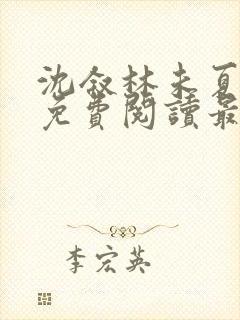 沈叙林未夏
免費閱讀最
李宏英